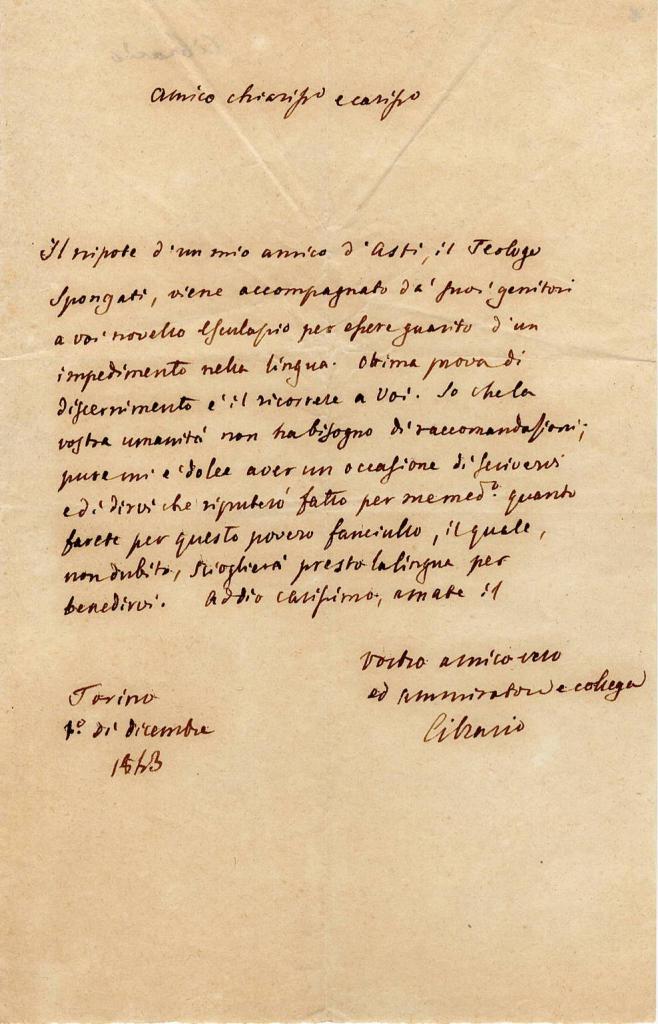 Amico chiariss͞o e cariss͞o
Il nipote d'un mio amico d'Asti, il Teologo
Spongati, viene accompagnato da' suoi genitori
a voi novello Esculapio per essere guarito d'un
impedimento nella lingua. Ottima prova di
discernimento è il ricorrere a voi. So che la
vostra umanità non ha bisogno di raccomandazioni;
pure mi è dolce aver un occasione di scrivervi
e di dirvi che riputerò fatto per me med.º quanto
farete per questo povero fanciullo, il quale,
non dubito, scioglierà presto la lingua per
benedirvi. Addio carissimo, amate il
Vostro amico vero
ed ammiratore e collega
Cibrario
Torino
1º di dicembre
1843